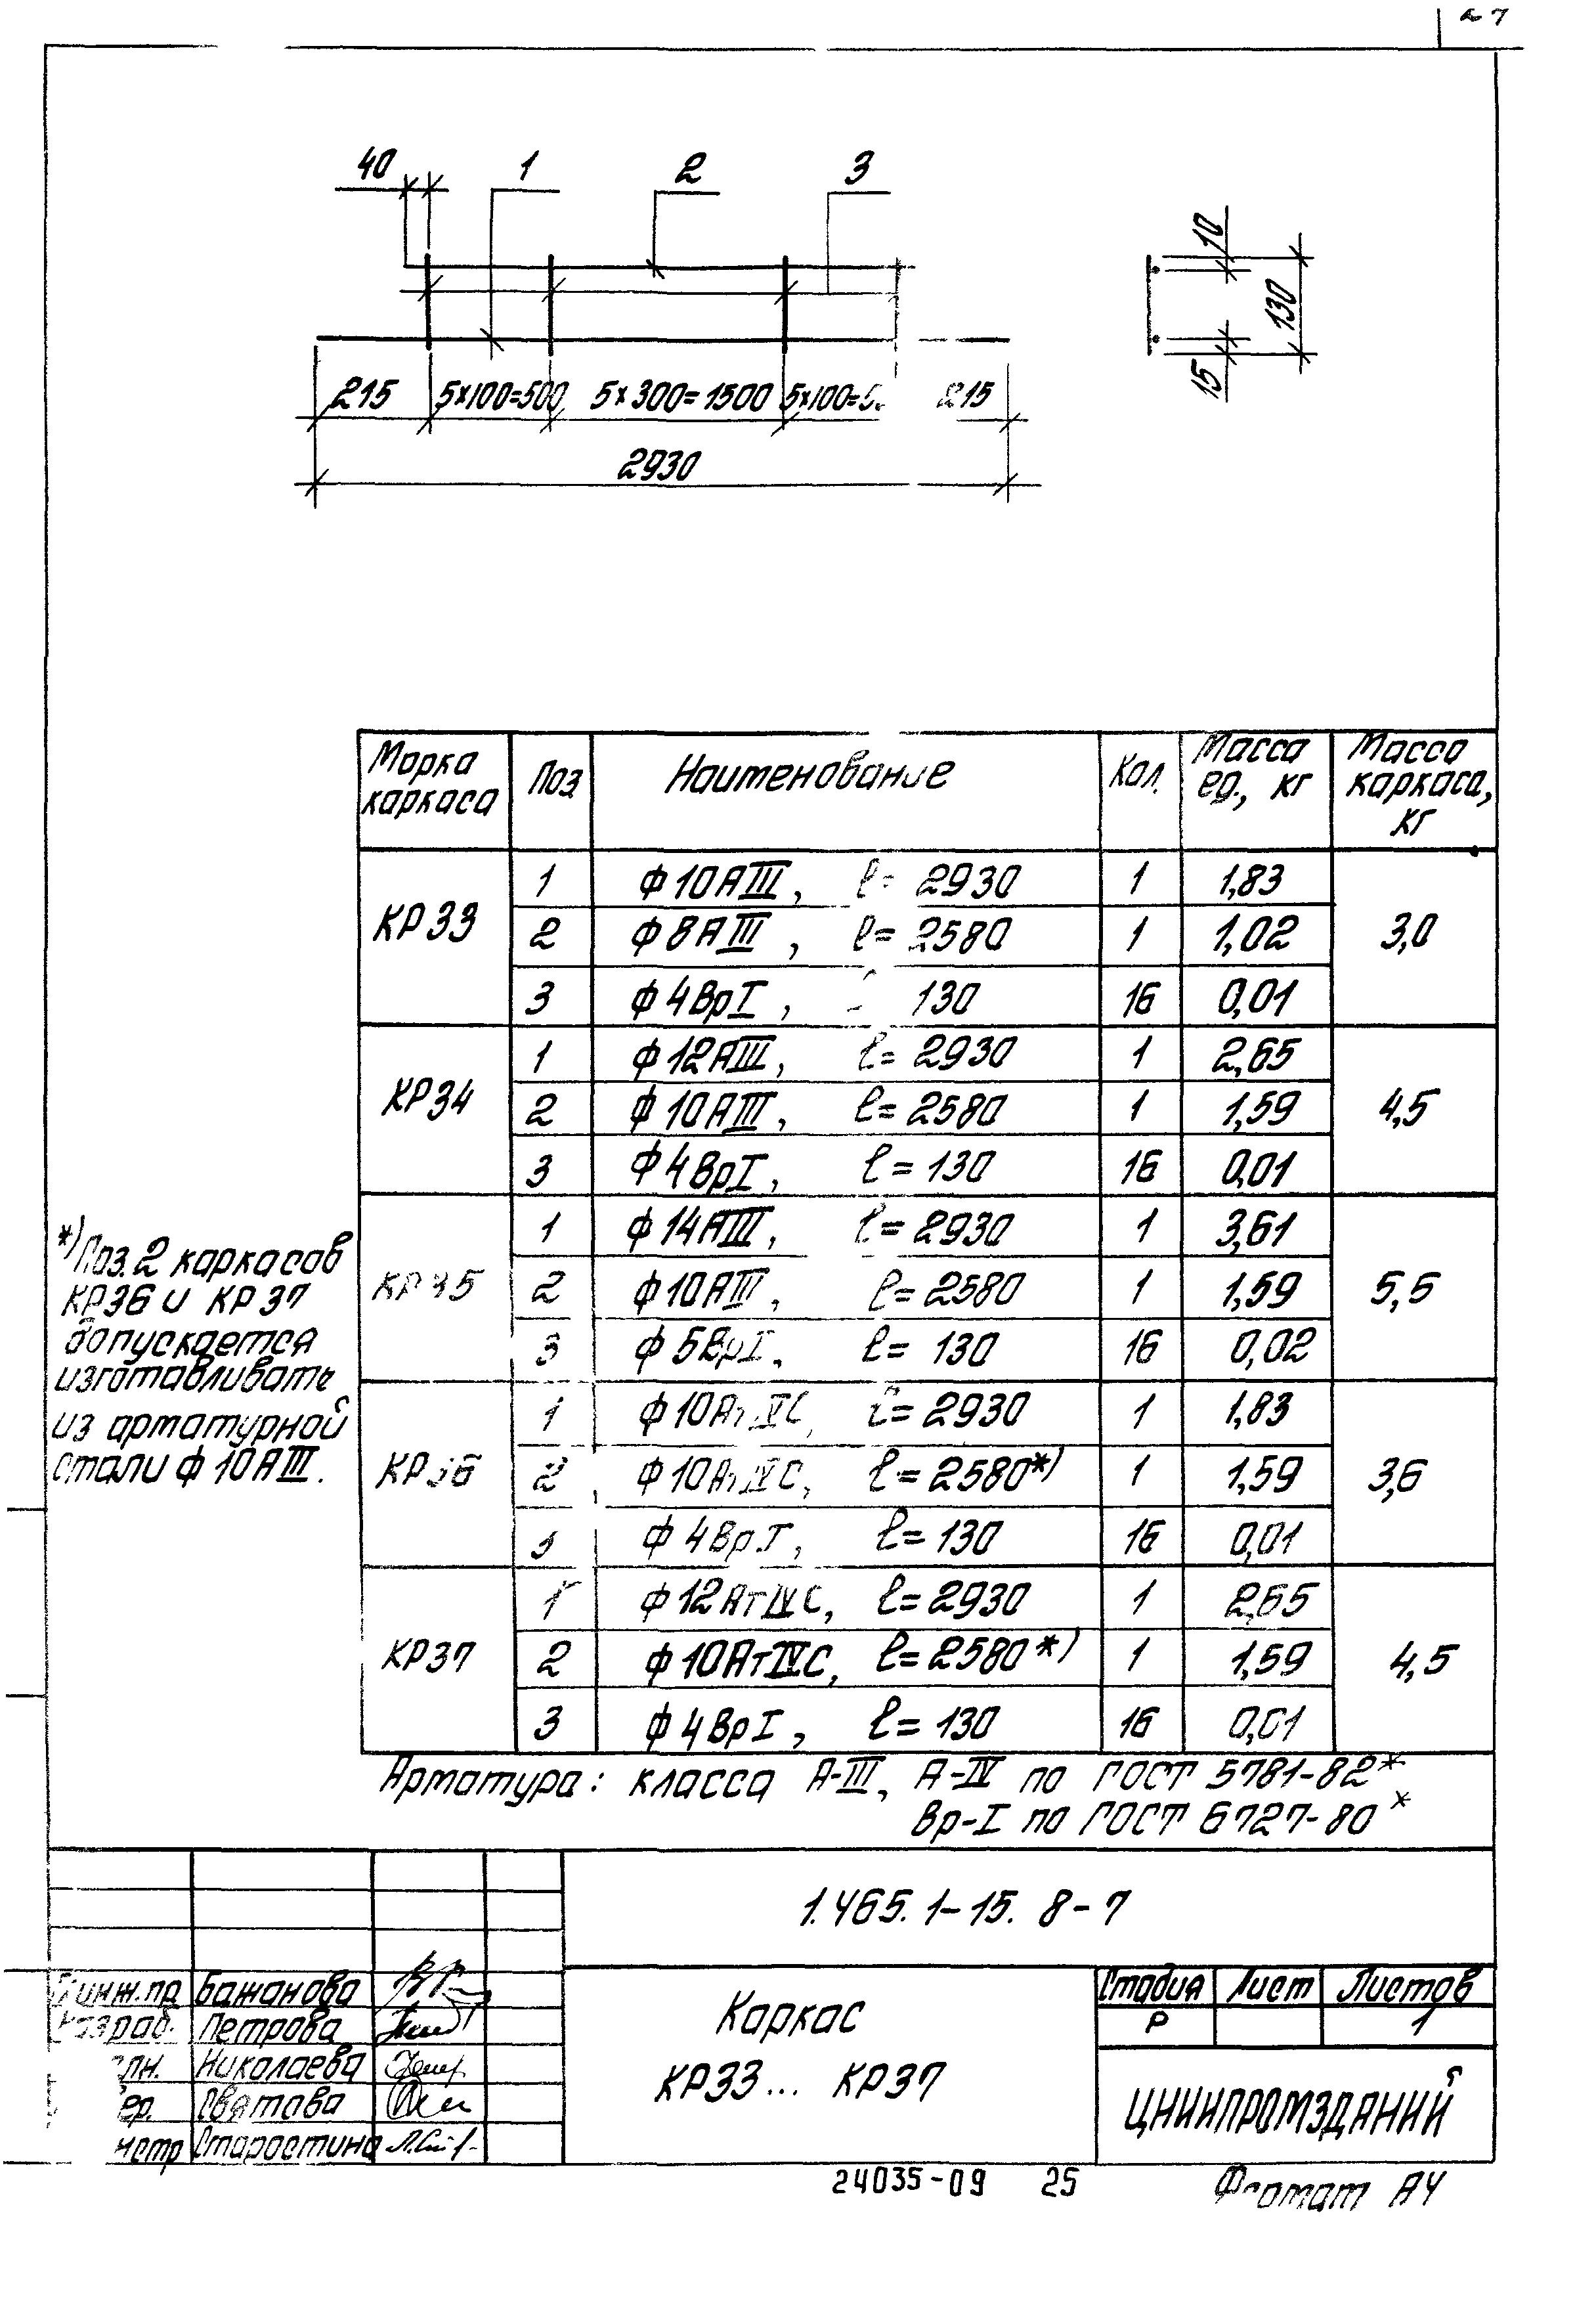 27
40 1 2 3
215 5×100=500 5×300=1500 5×100=5 215
2930
10
130
15
Марка каркаса Поз Наименование Кол. Масса ед., кг Масса каркаса, кг
КР33 1 ф10АIII, ℓ= 2930 1 1,83 3,0
2 ф8АIII, ℓ= 2580 1 1,02
3 ф4ВрI, 130 16 0,01
КР34 1 ф12АIII, ℓ= 2930 1 2,65 4,5
2 ф10АIII, ℓ= 2580 1 1,59
3 ф4ВрI, ℓ= 130 16 0,01
КР35 1 ф14АIII, ℓ= 2930 1 3,61 5,5
2 ф10АIII, ℓ= 2580 1 1,59
3 ф5ВрI, ℓ= 130 16 0,02
КР36 1 ф10АтIVС, ℓ= 2930 1 1,83 3,6
2 ф10АтIVС, ℓ= 2580*) 1 1,59
3 ф4ВрI, ℓ= 130 16 0,01
КР37 1 ф12АтIVС, ℓ= 2930 1 2,65 4,5
2 ф10АтIVС, ℓ= 2580*) 1 1,59
3 ф4ВрI, ℓ= 130 16 0,01
*) Поз. 2 каркасов
КР36 и КР37
допускается
изготавливать
из арматурной
стали ф10АIII.
Арматура: класса А-III, А-IV по ГОСТ 5781-82*
Вр-I по ГОСТ 6727-80*
1.465.1-15. 8-7
инж.пр Бажанова
Разраб. Петрова
лн. Николаева
ер. Святова
метр Старостина
Каркас
КР33... КР37
Стадия Лист Листов
Р 1
ЦНИИПРОМЗДАНИЙ
24035-09 25 Формат А4